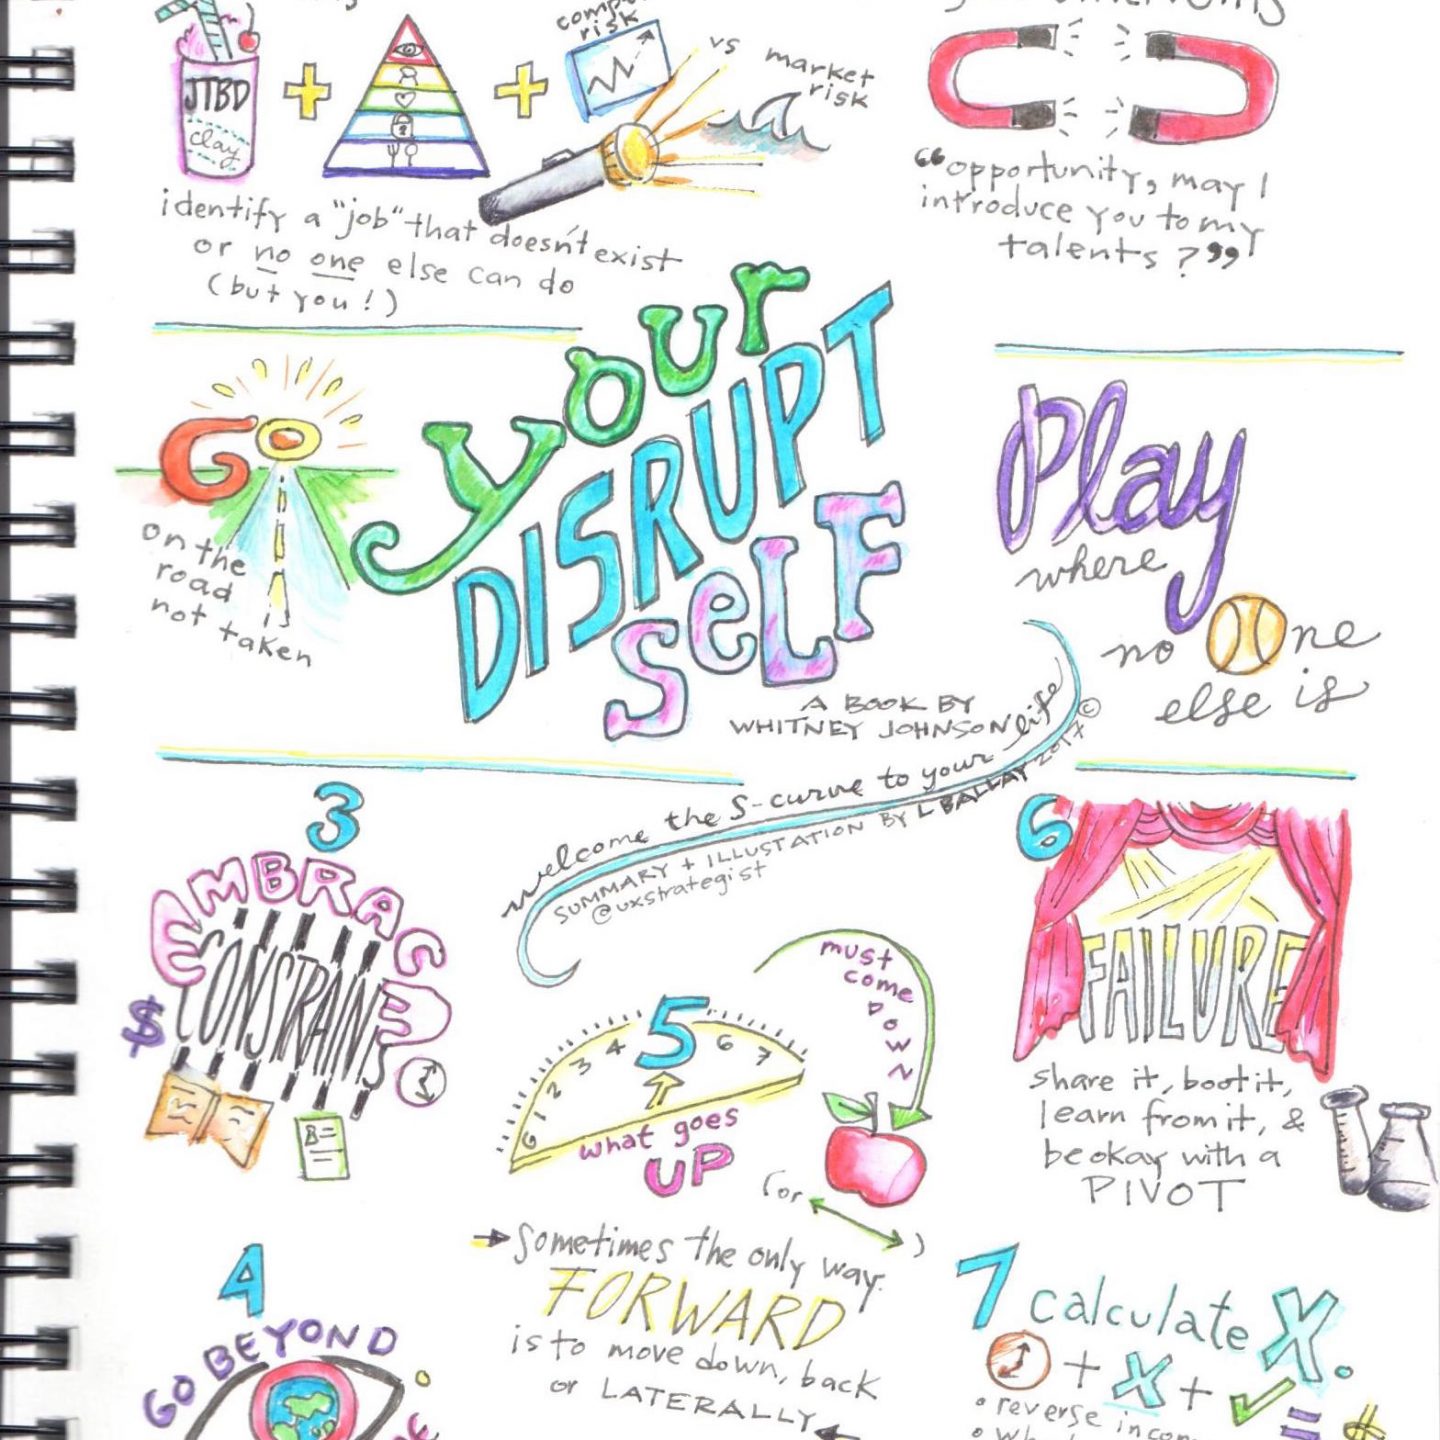 JTBD
clay
risk
vs market
risk
identify a "job" that doesn't exist
or no one else can do
(but you!)
"opportunity, may I
introduce you to my
talents?"
GO
on the
road
not taken
your
DISRUPT
SELF
A BOOK BY
WHITNEY JOHNSON
welcome the S-curve to your life
SUMMARY + ILLUSTRATION BY L BALLAY 2017 ©
@uxstrategist
Play
where
no One
else is
3
EMBRACE
CONSTRAINT
$
5
0 1 2 3 4 6 7
what goes
UP
must
come
DOWN
(or )
Sometimes the only way
FORWARD
is to move down, back
or LATERALLY
6
FAILURE
share it, boot it,
learn from it, &
be okay with a
PIVOT
4
GO BEYOND
7 calculate X.
+ X + =
• reverse